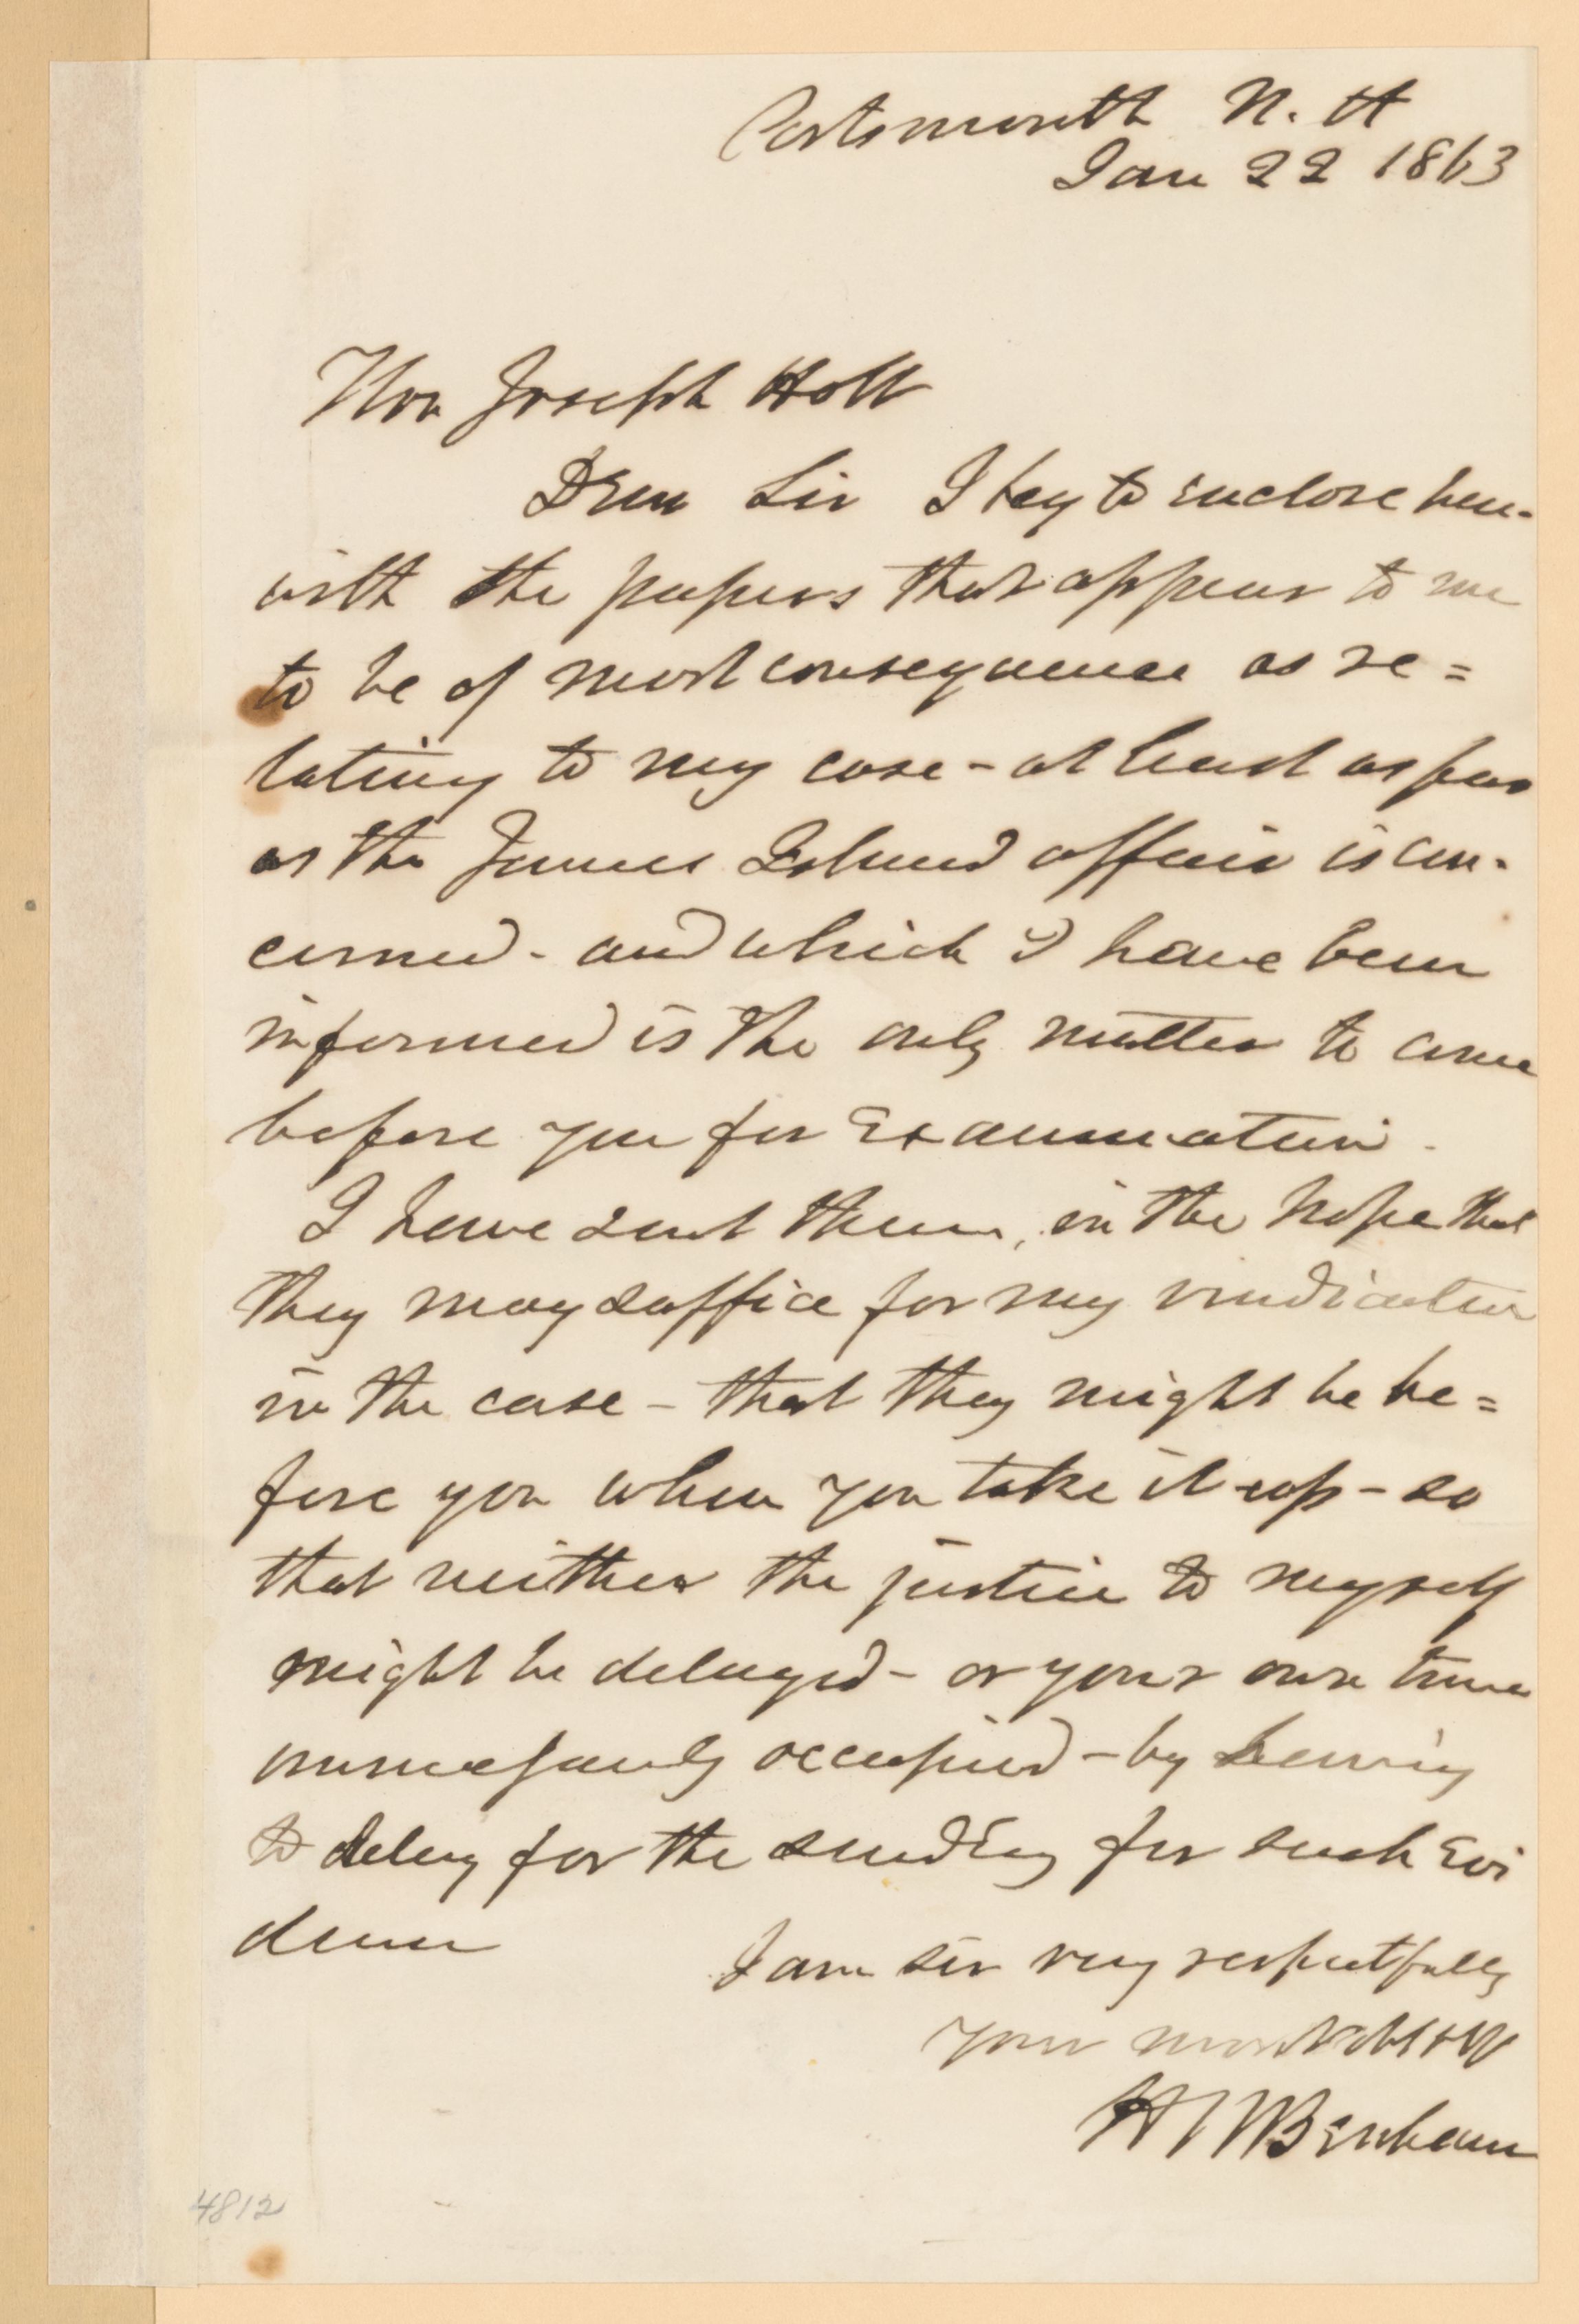 Portsmouth N. H
Jan 22 1863
Hon Joseph Holt
Dear Sir I beg to enclose here-
with the papers that appear to me
to be of most consequence as re=
lating to my case - at least as far
as the James Island affair is con-
cerned - and which I have been
informed is the only matter to come
before you for Examination.
I have sent them, in the hope that
they may suffice for my vindication
in the case - that they might be be=
fore you when you take it up - so
that neither the justice to myself
might be delayed - or your own time
unnecessarily occupied - by having
to delay for the sending for such Evi
dence
I am sir very respectfully
Your most obt
H W Benham
4812